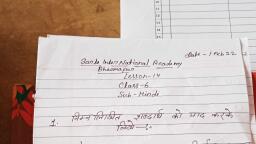 date - 1 Feb 22
Sants International Academy
Bhawanipur
Lesson-14
Class-6
Sub-Hindi
1. निम्न लिखित शब्दार्थ को याद करके
लिखे -: